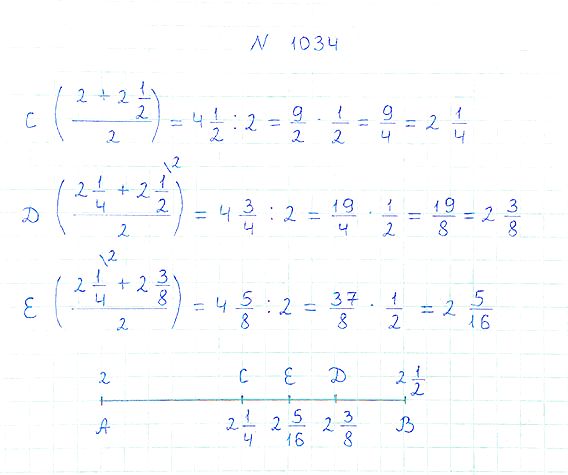 N 1034
C ( (2 + 2 1/2) / 2 ) = 4 1/2 : 2 = 9/2 · 1/2 = 9/4 = 2 1/4
D ( (2 1/4 + 2 1/2 \2) / 2 ) = 4 3/4 : 2 = 19/4 · 1/2 = 19/8 = 2 3/8
E ( (2 1/4 \2 + 2 3/8) / 2 ) = 4 5/8 : 2 = 37/8 · 1/2 = 2 5/16
2 C E D 2 1/2
A 2 1/4 2 5/16 2 3/8 B